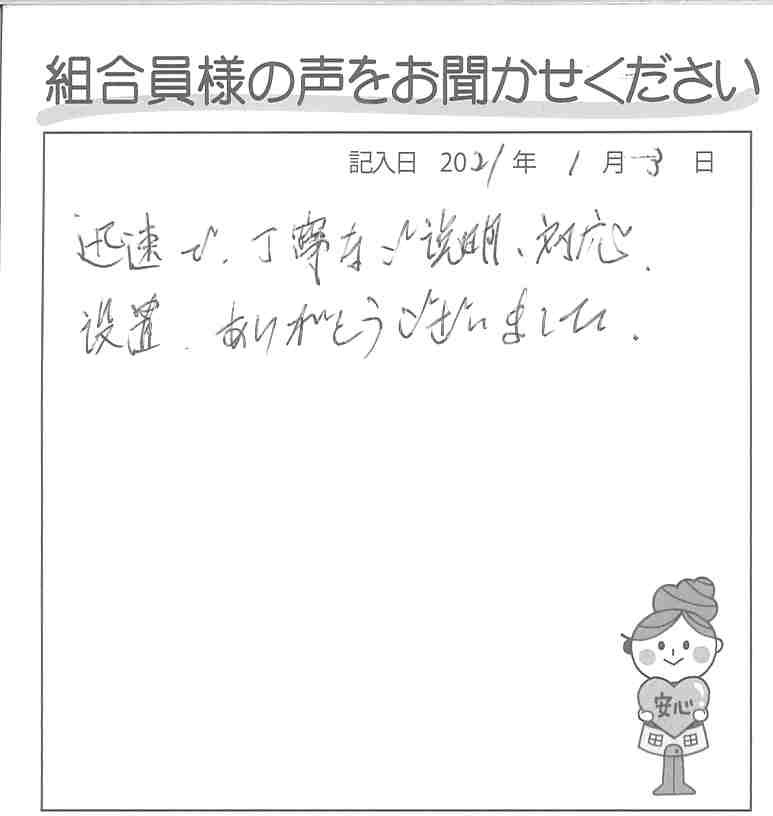 組合員様の声をお聞かせください
記入日 2021年 1月 3日
迅速で、丁寧なご説明、対応、
設置、ありがとうございました。
安心